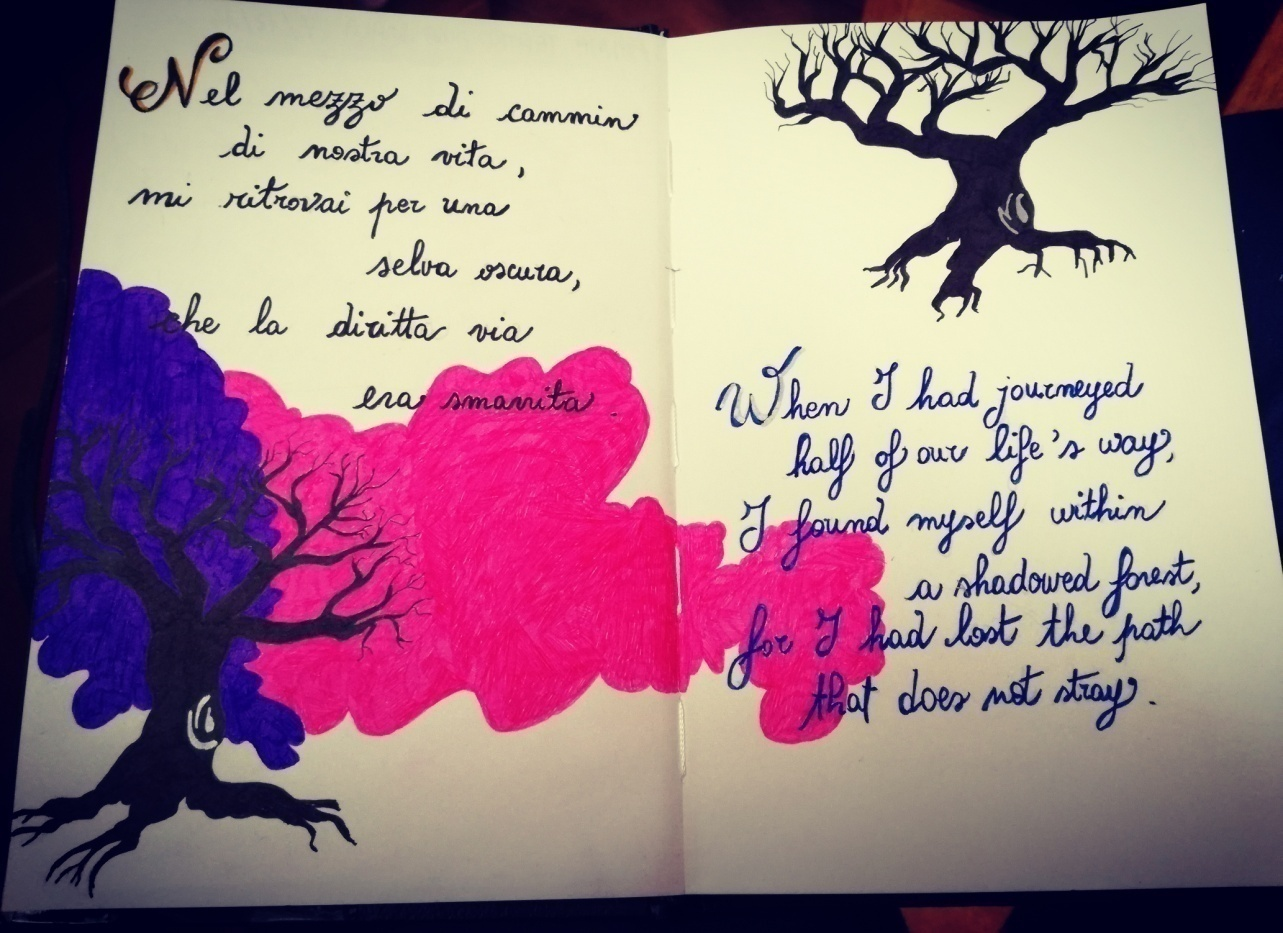 Nel mezzo di cammin
di nostra vita,
mi ritrovai per una
selva oscura,
che la diritta via
era smarrita.
When I had journeyed
half of our life's way,
I found myself within
a shadowed forest,
for I had lost the path
that does not stray.